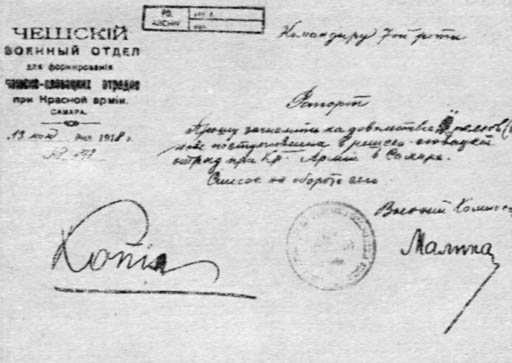 ЧЕШСКІЙ
ВОЕННЫЙ ОТДЕЛ
для формирования
чешско-словацких отрядов
при Красной арміи.
САМАРА.
13 мая 1918 г.
№
Командиру роты
Рапорт
Прошу зачислить на довольствіе человек
поступивших в чешско-словацкой
отряд при Кр. Арміи в Самаре.
Список на обороте сего.
Военный Комисс
Малина
Копія